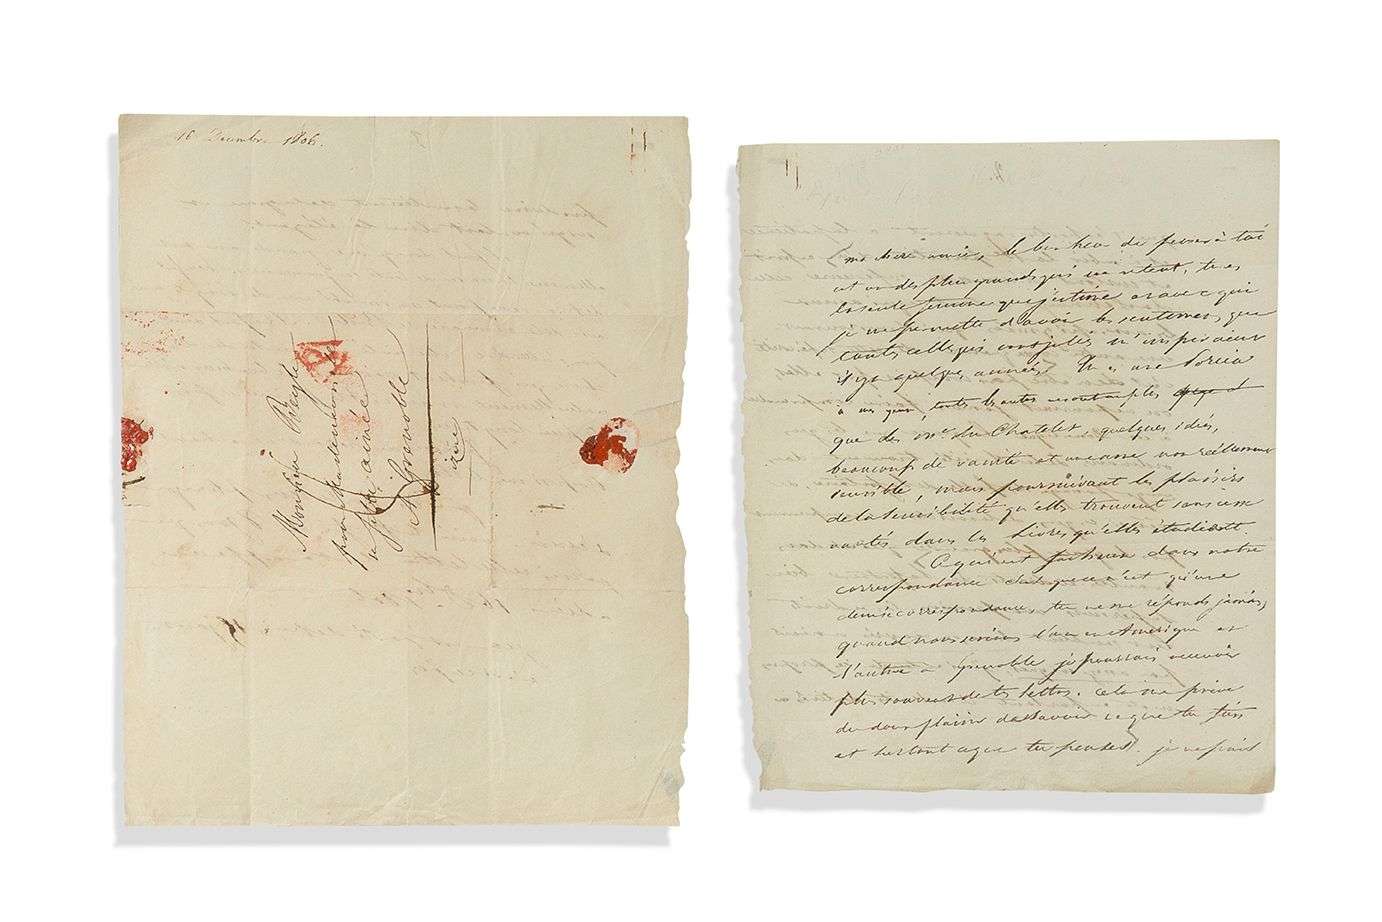 16 Décembre 1806.
Monsieur Beyle
pour Mademoiselle
sa fille ainée
A Grenoble
isère
2.
ma chere amie, le bonheur de penser à toi
est un des plus grands qui me restent, tu es
la seule femme que j'estime et avec qui
je me permette d'avoir les sentimens, que
toutes celles qui sont jolies m'inspiraient
il y a quelques années. Tu es une Porcia
à mes yeux, toutes les autres ne sont au plus
que des Me. du Chatelet, quelques idées,
beaucoup de vanité et une ame non réellement
sensible, mais poursuivant les plaisirs
de la sensibilité qu'elles trouvent sans cesse
vantés dans les Livres qu'elles étudient.
Ce qui est facheux dans notre
correspondance c'est que ce n'est qu'une
demie correspondance, tu ne me réponds jamais,
quand nous serions l'un en Amérique et
l'autre à Grenoble je pourrais recevoir
plus souvent de tes lettres. cela me prive
du doux plaisir de savoir ce que tu fais
et surtout ce que tu penses. je ne sais